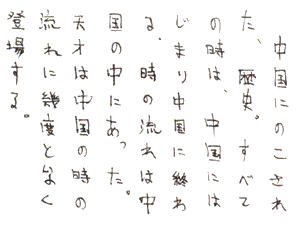 中国にのこされ
た、歴史。すべて
の時は、中国には
じまり中国に終わ
る、時の流れは中
国の中にあった。
天才は中国の時の
流れに幾度となく
登場する。